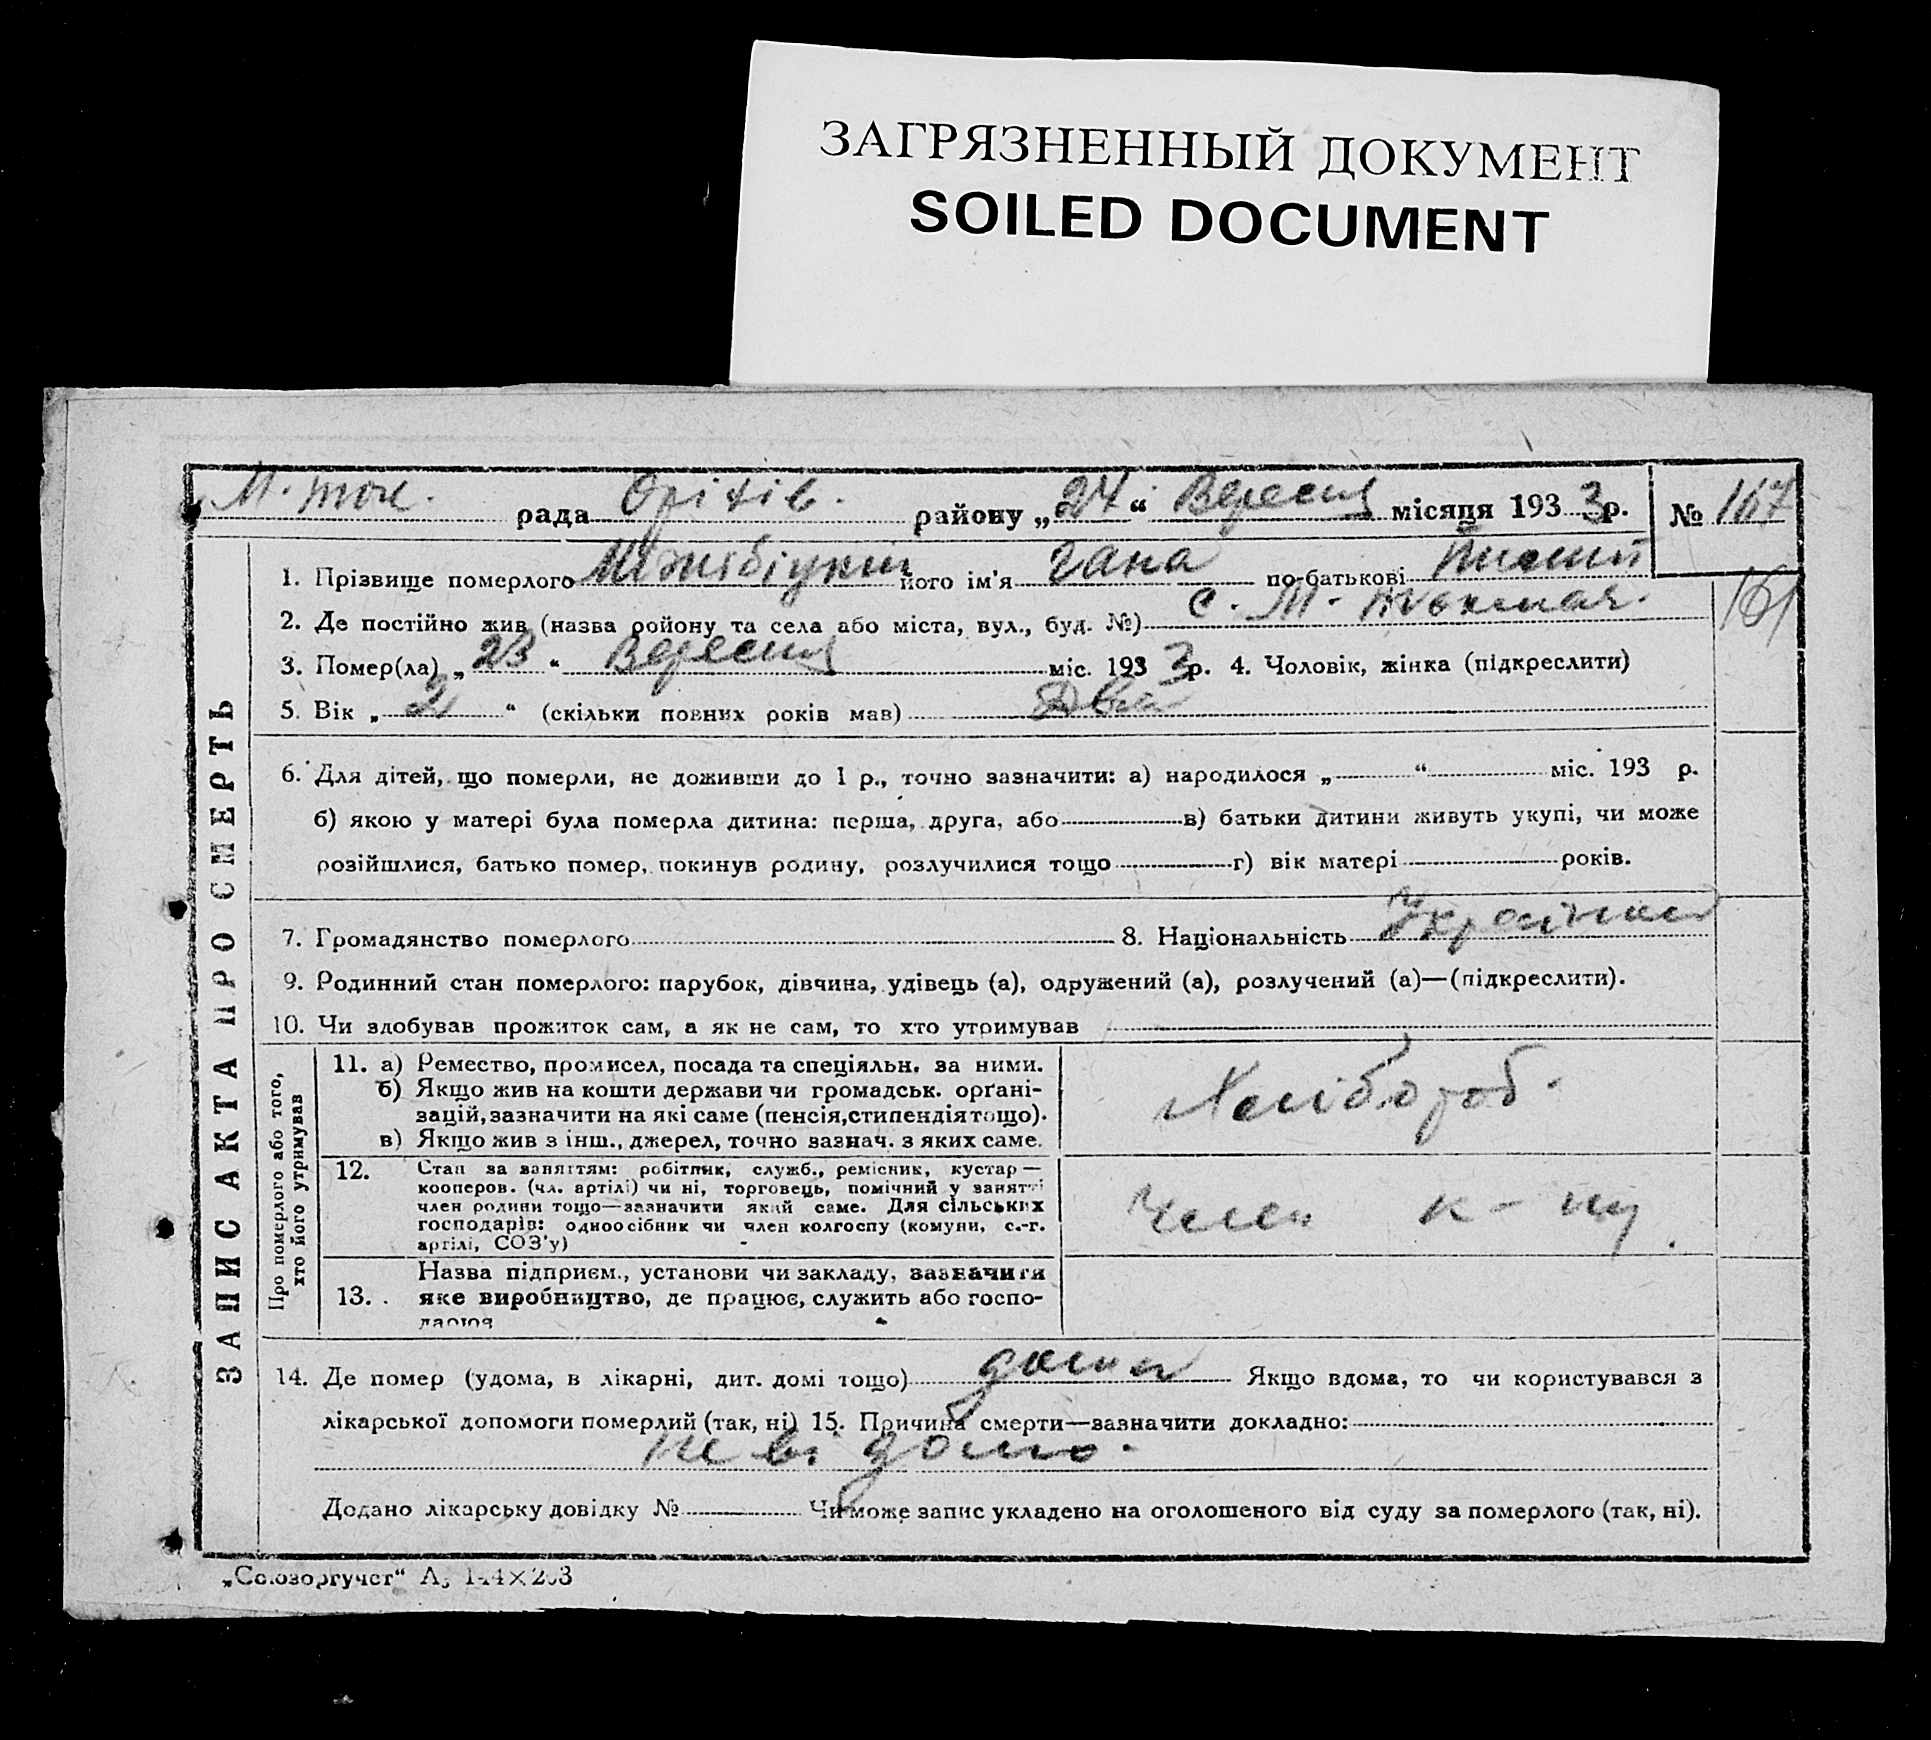 ЗАГРЯЗНЕННЫЙ ДОКУМЕНТ
SOILED DOCUMENT
М. Ток. рада Орітів. району „24“ Вересня місяця 1933 р. № 167
1. Прізвище померлого його ім'я Гана по-батькові
161
2. Де постійно жив (назва району та села або міста, вул., буд. №) с. М.
3. Помер(ла) „23“ Вересня міс. 1933 р. 4. Чоловік, жінка (підкреслити)
5. Вік „2“ (скільки повних років мав) Два
6. Для дітей, що померли, не доживши до 1 р., точно зазначити: а) народилося „ “ міс. 193 р.
б) якою у матері була померла дитина: перша, друга, або в) батьки дитини живуть укупі, чи може
розійшлися, батько помер, покинув родину, розлучилися тощо г) вік матері років.
7. Громадянство померлого 8. Національність Україн
9. Родинний стан померлого: парубок, дівчина, удівець (а), одружений (а), розлучений (а)—(підкреслити).
10. Чи здобував прожиток сам, а як не сам, то хто утримував
11. а) Ремество, промисел, посада та спеціяльн. за ними.
б) Якщо жив на кошти держави чи громадськ. орґані-
зацій, зазначити на які саме (пенсія, стипендія тощо).
в) Якщо жив з інш., джерел, точно зазнач. з яких саме.
Хлібороб.
12. Стан за заняттям: робітник, служб., ремісник, кустар—
кооперов. (чл. артілі) чи ні, торговець, помічний у занятті
член родини тощо—зазначити який саме. Для сільських
господарів: одноосібник чи член колгоспу (комуни, с.-г.
артілі, СОЗ'у)
Член к-пу.
13. Назва підприєм., установи чи закладу, зазначити
яке виробництво, де працює, служить або госпо-
дарює
14. Де помер (удома, в лікарні, дит. домі тощо) дома Якщо вдома, то чи користувався з
лікарської допомоги померлий (так, ні) 15. Причина смерти—зазначити докладно:
не відомо.
Додано лікарську довідку № Чи може запис укладено на оголошеного від суду за померлого (так, ні).
„Союзоргучет“
ЗАПИС АКТА ПРО СМЕРТЬ
Про померлого або того,
хто його утримував